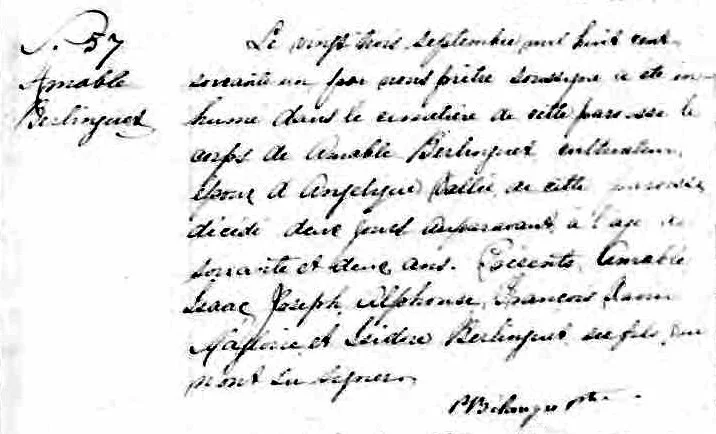 S. 57
Amable
Berlinguet
Le vingt trois septembre mil huit cent
soixante un par nous prêtre soussigné a été in-
humé dans le cimetière de cette paroisse le
corps de Amable Berlinguet, cultivateur,
époux d'Angelique Vallée, de cette paroisse,
décédé deux jours auparavant, à l'age de
soixante et deux ans. Présents, Amable
Isaac, Joseph, Alphonse, François,
Magloire, et Isidore Berlinguet, ses fils, qui
n'ont su signer.
Ptre.